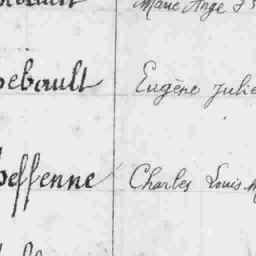 Marie Ange
ebault Eugène Julie
effenne Charles Louis